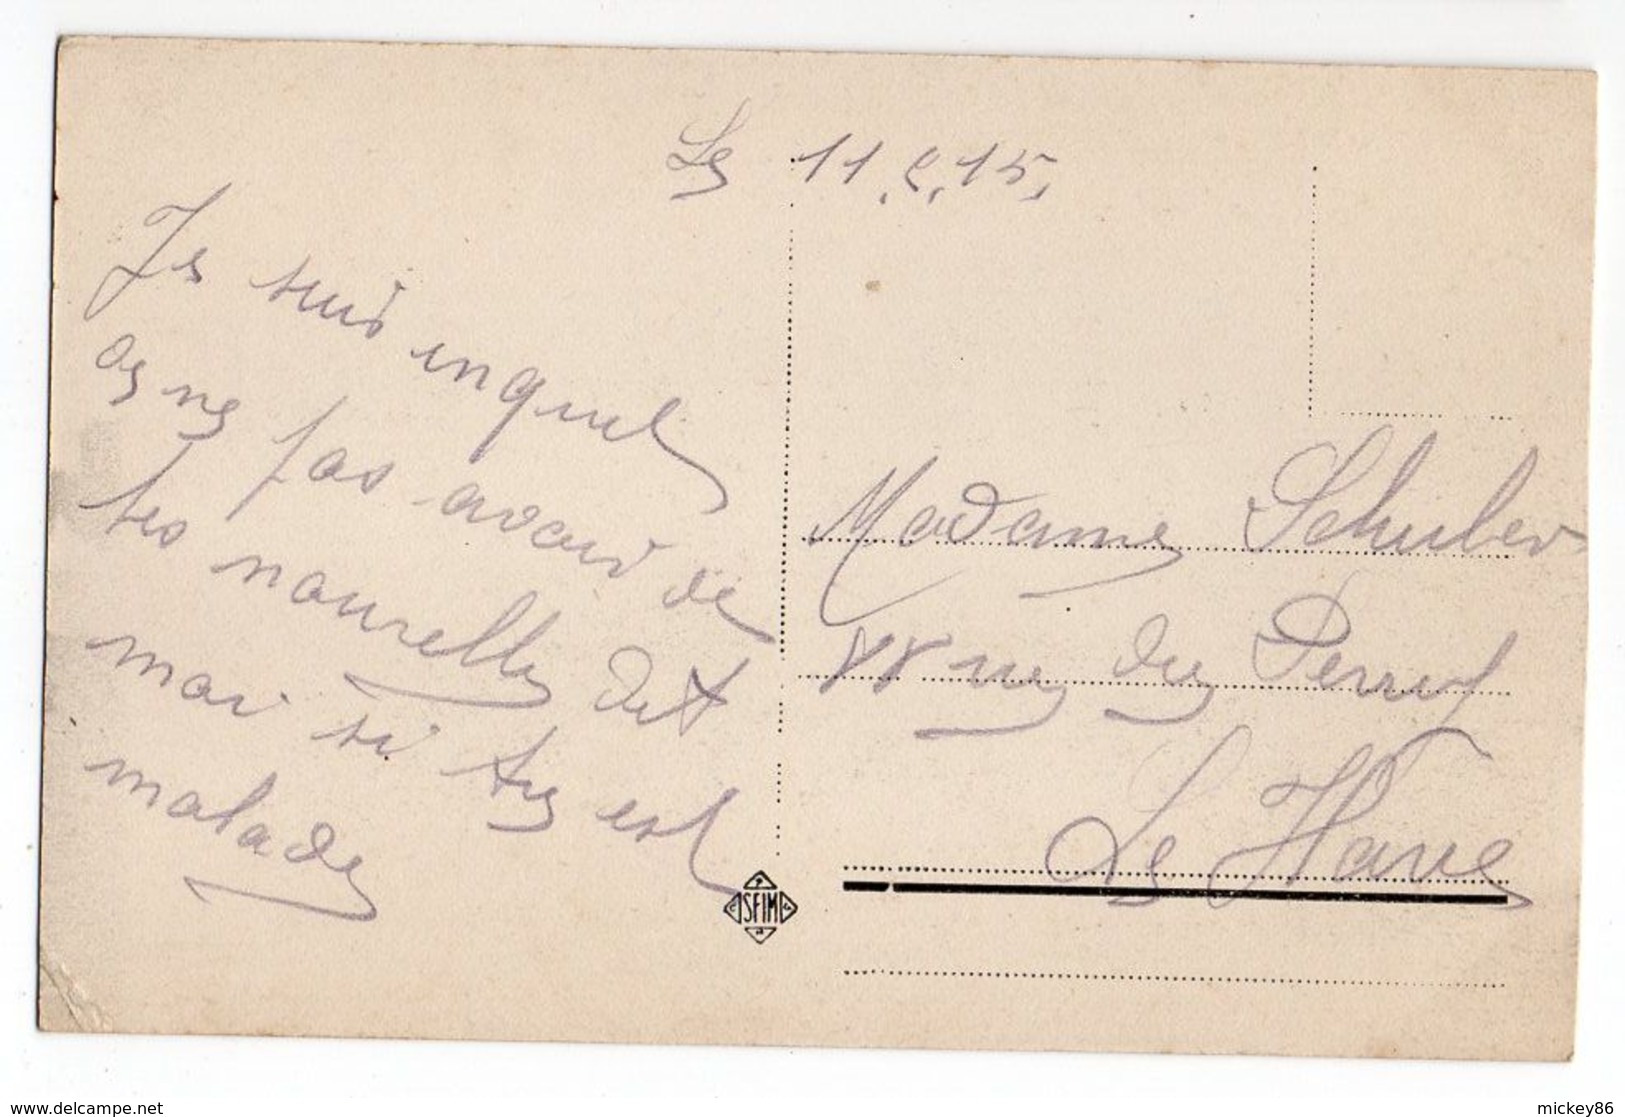 Le 11.2.15.
Je suis inquiet
de ne pas avoir de
tes nouvelles dit
moi si tu est
malade
Madame Schuber
rue du Perrey
Le Havre
SFIM
www.delcampe.net
mickey86